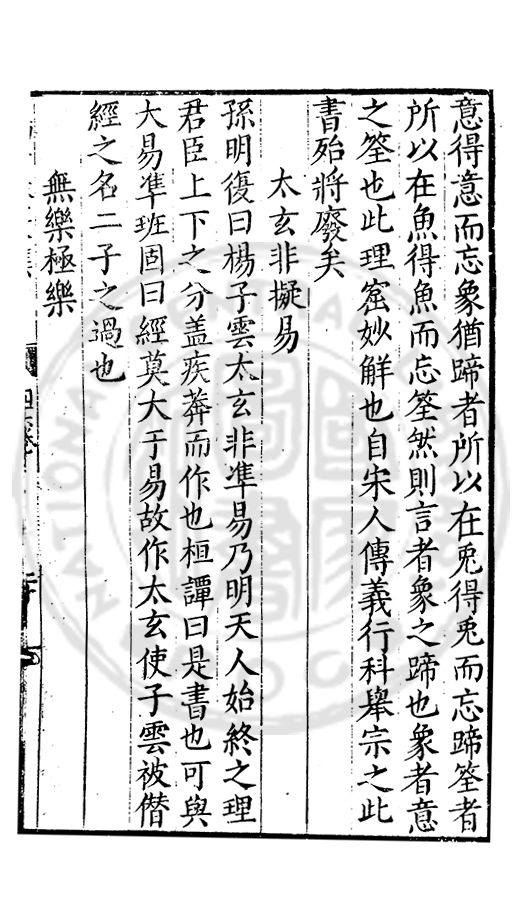 意得意而忘象猶蹄者所以在兎得兎而忘蹄筌者
所以在魚得魚而忘筌然則言者象之蹄也象者意
之筌也此理窟妙解也自宋人傳義行科舉宗之此
書殆將廢矣
太玄非擬易
孫明復曰楊子雲太玄非準易乃明天人始終之理
君臣上下之分盖疾莽而作也桓譚曰是書也可與
大易準班固曰經莫大于易故作太玄使子雲被僣
經之名二子之過也
無樂極樂